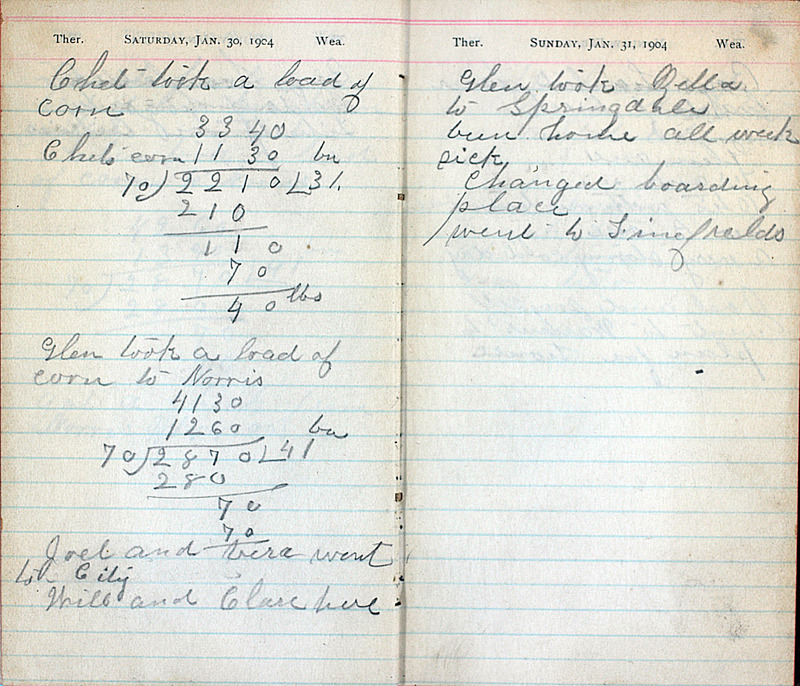 Ther. SATURDAY, JAN. 30, 1904 Wea.
Chet took a load of
corn
3340
Chets corn 1130 bu
70)2210(31
210
110
70
40 lbs
Glen took a load of
corn to Norris
4130
1260 bu
70)2870(41
280
70
70
Joel and went
to City
Will and Clare here
Ther. SUNDAY, JAN. 31, 1904 Wea.
Glen took Zella
to Springdale
been home all week
sick
Changed boarding
place
went to